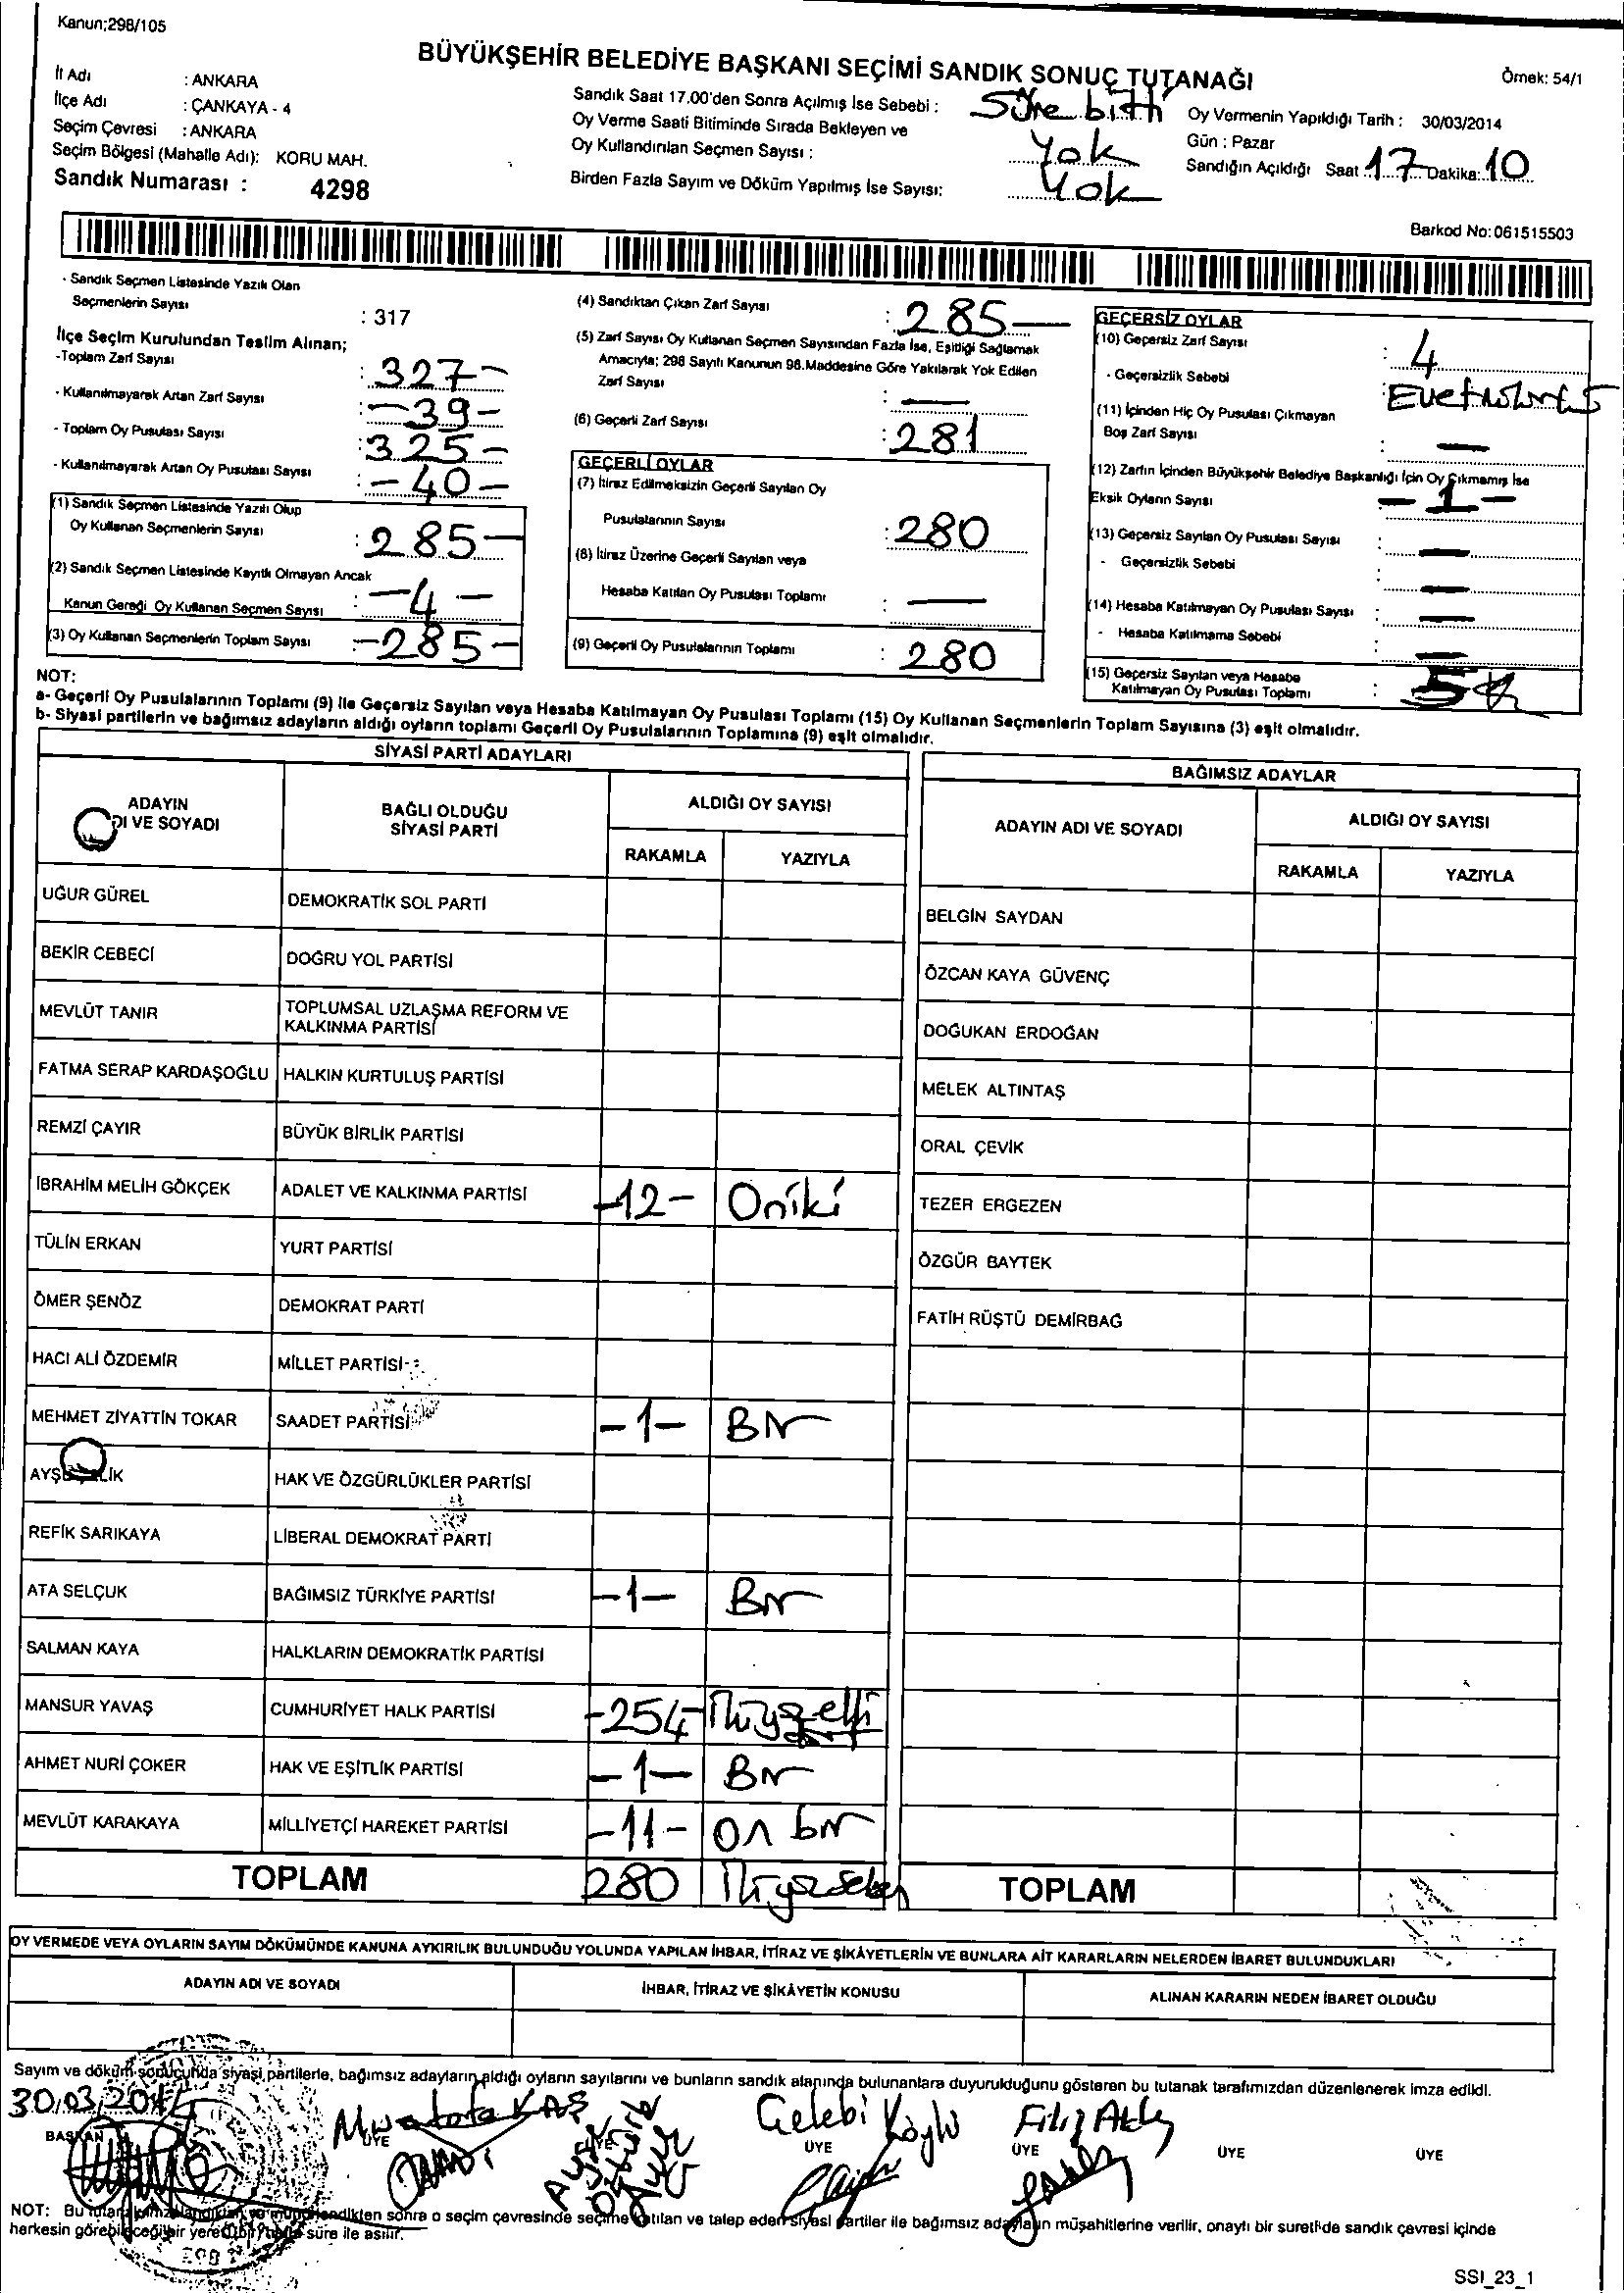 Kanun;298/105
BÜYÜKŞEHİR BELEDİYE BAŞKANI SEÇİMİ SANDIK SONUÇ TUTANAĞI
Örnek: 54/1
İl Adı : ANKARA
İlçe Adı : ÇANKAYA - 4
Seçim Çevresi : ANKARA
Seçim Bölgesi (Mahalle Adı): KORU MAH.
Sandık Numarası : 4298
Sandık Saat 17.00'den Sonra Açılmış İse Sebebi : Süre bitti
Oy Verme Saati Bitiminde Sırada Bekleyen ve
Oy Kullandırılan Seçmen Sayısı : Yok
Birden Fazla Sayım ve Döküm Yapılmış İse Sayısı: Yok
Oy Vermenin Yapıldığı Tarih : 30/03/2014
Gün : Pazar
Sandığın Açıldığı Saat 17 Dakika: 10
Barkod No:061515503
- Sandık Seçmen Listesinde Yazılı Olan
Seçmenlerin Sayısı : 317
İlçe Seçim Kurulundan Teslim Alınan;
-Toplam Zarf Sayısı : 327-
- Kullanılmayarak Artan Zarf Sayısı : -39-
- Toplam Oy Pusulası Sayısı : 325-
- Kullanılmayarak Artan Oy Pusulası Sayısı : -40-
(1) Sandık Seçmen Listesinde Yazılı Olup
Oy Kullanan Seçmenlerin Sayısı : 285-
(2) Sandık Seçmen Listesinde Kayıtlı Olmayan Ancak
Kanun Gereği Oy Kullanan Seçmen Sayısı : -4-
(3) Oy Kullanan Seçmenlerin Toplam Sayısı : -285-
(4) Sandıktan Çıkan Zarf Sayısı : 285-
(5) Zarf Sayısı Oy Kullanan Seçmen Sayısından Fazla İse, Eşitliği Sağlamak
Amacıyla; 298 Sayılı Kanunun 98.Maddesine Göre Yakılarak Yok Edilen
Zarf Sayısı : -
(6) Geçerli Zarf Sayısı : 281
GEÇERLİ OYLAR
(7) İtiraz Edilmeksizin Geçerli Sayılan Oy
Pusulalarının Sayısı : 280
(8) İtiraz Üzerine Geçerli Sayılan veya
Hesaba Katılan Oy Pusulası Toplamı : -
(9) Geçerli Oy Pusulalarının Toplamı : 280
GEÇERSİZ OYLAR
(10) Geçersiz Zarf Sayısı : 4
- Geçersizlik Sebebi :
(11) İçinden Hiç Oy Pusulası Çıkmayan
Boş Zarf Sayısı : -
(12) Zarfın İçinden Büyükşehir Belediye Başkanlığı İçin Oy Çıkmamış İse
Eksik Oyların Sayısı - 1 -
(13) Geçersiz Sayılan Oy Pusulası Sayısı : -
- Geçersizlik Sebebi : -
(14) Hesaba Katılmayan Oy Pusulası Sayısı : -
- Hesaba Katılmama Sebebi : -
(15) Geçersiz Sayılan veya Hesaba
Katılmayan Oy Pusulası Toplamı : 5
NOT:
a- Geçerli Oy Pusulalarının Toplamı (9) ile Geçersiz Sayılan veya Hesaba Katılmayan Oy Pusulası Toplamı (15) Oy Kullanan Seçmenlerin Toplam Sayısına (3) eşit olmalıdır.
b- Siyasi partilerin ve bağımsız adayların aldığı oyların toplamı Geçerli Oy Pusulalarının Toplamına (9) eşit olmalıdır.
SİYASİ PARTİ ADAYLARI
ADAYIN DI VE SOYADI
BAĞLI OLDUĞU SİYASİ PARTİ
ALDIĞI OY SAYISI
RAKAMLA YAZIYLA
UĞUR GÜREL DEMOKRATİK SOL PARTİ
BEKİR CEBECİ DOĞRU YOL PARTİSİ
MEVLÜT TANIR TOPLUMSAL UZLAŞMA REFORM VE
KALKINMA PARTİSİ
FATMA SERAP KARDAŞOĞLU HALKIN KURTULUŞ PARTİSİ
REMZİ ÇAYIR BÜYÜK BİRLİK PARTİSİ
İBRAHİM MELİH GÖKÇEK ADALET VE KALKINMA PARTİSİ -12- Oniki
TÜLİN ERKAN YURT PARTİSİ
ÖMER ŞENÖZ DEMOKRAT PARTİ
HACI ALİ ÖZDEMİR MİLLET PARTİSİ
MEHMET ZİYATTİN TOKAR SAADET PARTİSİ -1- Bir
LİK HAK VE ÖZGÜRLÜKLER PARTİSİ
REFİK SARIKAYA LİBERAL DEMOKRAT PARTİ
ATA SELÇUK BAĞIMSIZ TÜRKİYE PARTİSİ -1- Bir
SALMAN KAYA HALKLARIN DEMOKRATİK PARTİSİ
MANSUR YAVAŞ CUMHURİYET HALK PARTİSİ -254-
AHMET NURİ ÇOKER HAK VE EŞİTLİK PARTİSİ -1- Bir
MEVLÜT KARAKAYA MİLLİYETÇİ HAREKET PARTİSİ -11- on bir
TOPLAM 280
BAĞIMSIZ ADAYLAR
ADAYIN ADI VE SOYADI ALDIĞI OY SAYISI
RAKAMLA YAZIYLA
BELGİN SAYDAN
ÖZCAN KAYA GÜVENÇ
DOĞUKAN ERDOĞAN
MELEK ALTINTAŞ
ORAL ÇEVİK
TEZER ERGEZEN
ÖZGÜR BAYTEK
FATİH RÜŞTÜ DEMİRBAĞ
TOPLAM
OY VERMEDE VEYA OYLARIN SAYIM DÖKÜMÜNDE KANUNA AYKIRILIK BULUNDUĞU YOLUNDA YAPILAN İHBAR, İTİRAZ VE ŞİKÂYETLERİN VE BUNLARA AİT KARARLARIN NELERDEN İBARET BULUNDUKLARI
ADAYIN ADI VE SOYADI İHBAR, İTİRAZ VE ŞİKÂYETİN KONUSU ALINAN KARARIN NEDEN İBARET OLDUĞU
Sayım ve döküm sonucunda siyasi partilerle, bağımsız adayların aldığı oyların sayılarını ve bunların sandık alanında bulunanlara duyurulduğunu gösteren bu tutanak tarafımızdan düzenlenerek imza edildi.
30.03.2014
Mustafa KAŞ Çelebi Köylü
BAŞKAN ÜYE ÜYE ÜYE ÜYE ÜYE ÜYE
NOT: Bu sonra o seçim çevresinde seçime katılan ve talep eden siyasi partiler ile bağımsız adayların müşahitlerine verilir, onaylı bir sureti de sandık çevresi içinde
herkesin görebileceği bir yerde bir hafta süre ile asılır.
SSI_23_1